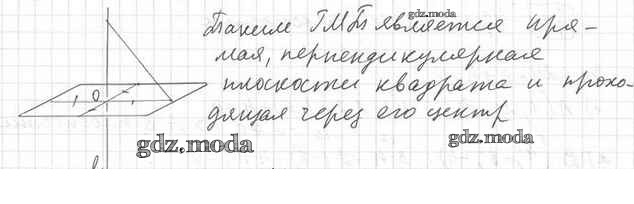 gdz.moda
Таким ГМТ является пря-
мая, перпендикулярная
плоскости квадрата и прохо-
дящая через его центр
O
gdz.moda
gdz.moda